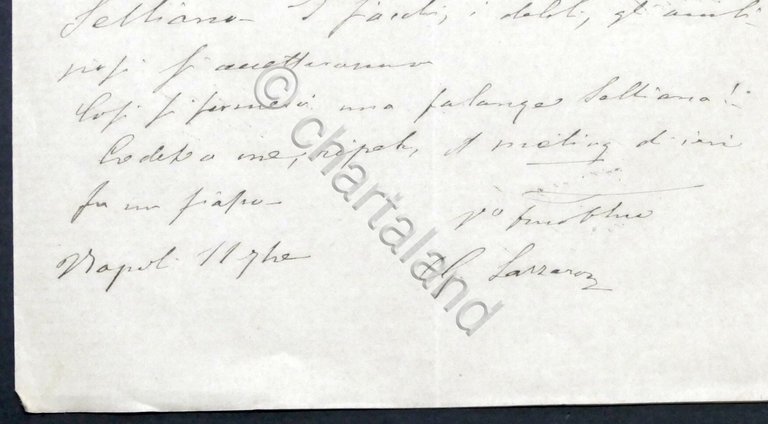 Selliano. I fiacchi, i deboli, gli ambi-
ziosi si accetteranno
Così si formerà una falange Selliana!
Credete a me, ripeto, il meeting di ieri
fu un fiasco
Napoli 11 7bre
V°
Lazzaro
© chartaland